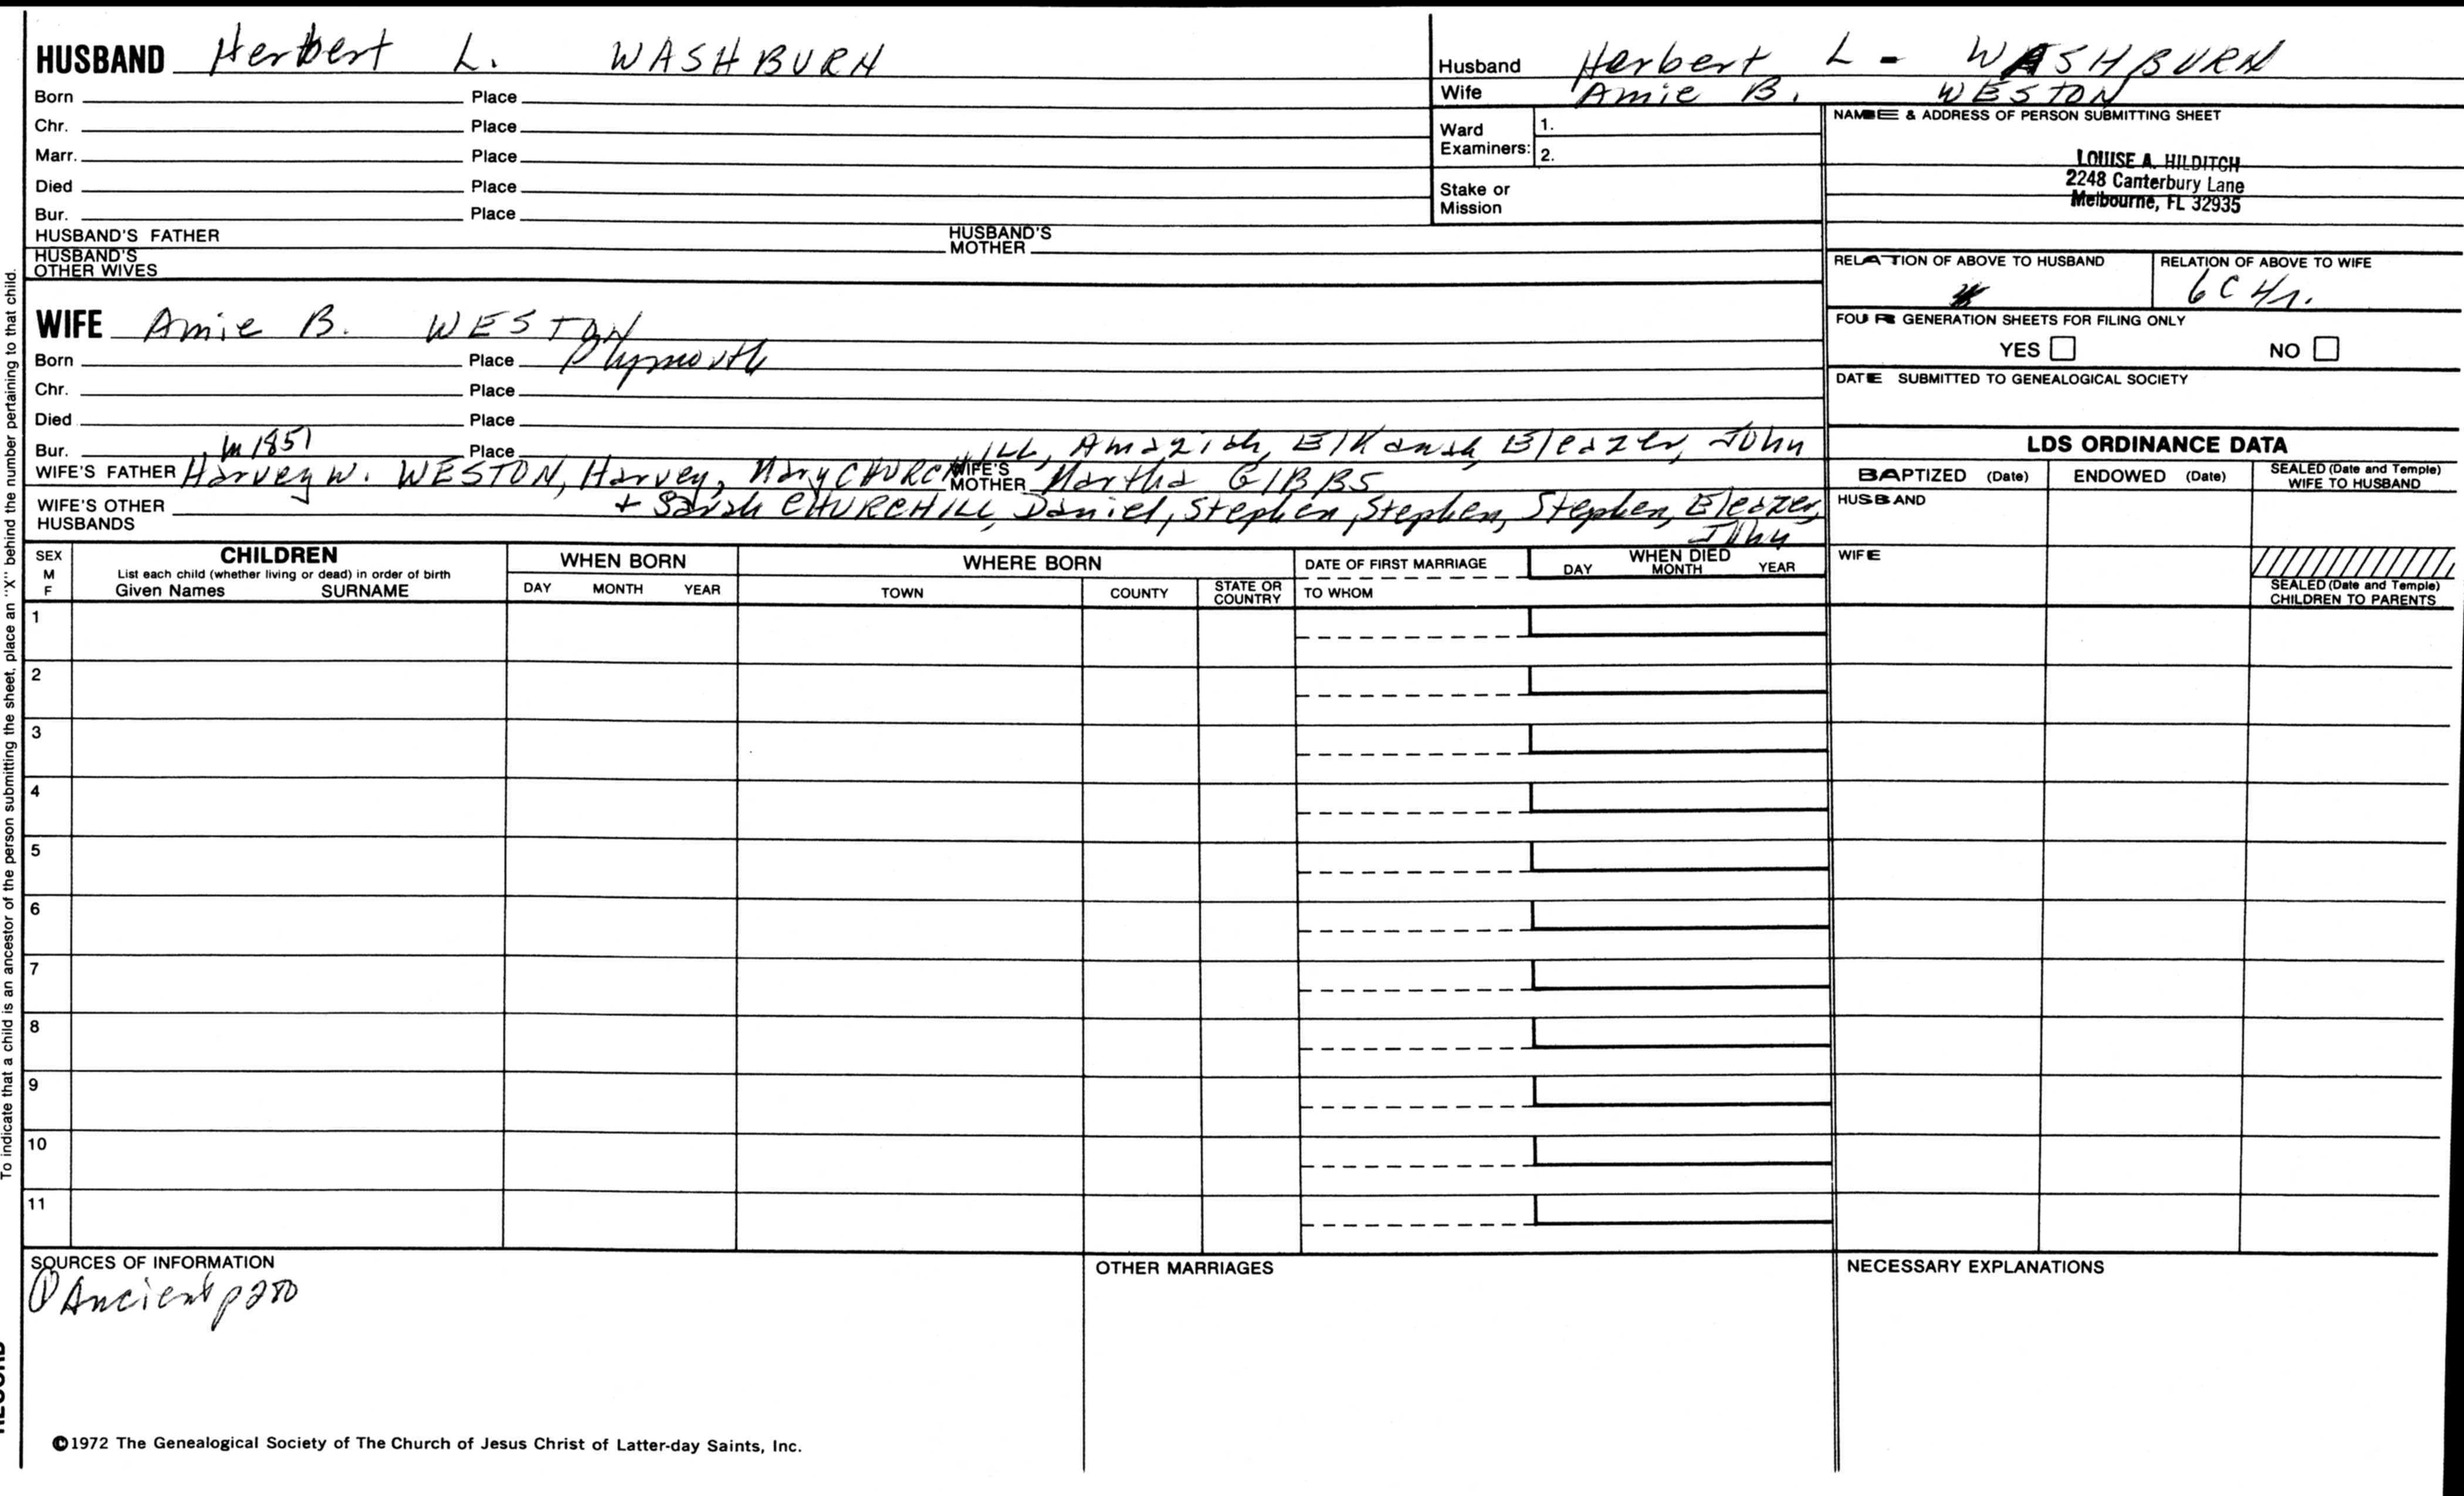 HUSBAND Herbert L. WASHBURN
Born Place
Chr. Place
Marr. Place
Died Place
Bur. Place
HUSBAND'S FATHER HUSBAND'S MOTHER
HUSBAND'S OTHER WIVES
WIFE Amie B. WESTON
Born Place Plymouth
Chr. Place
Died Place
Bur. m 1851 Place
WIFE'S FATHER Harvey W. WESTON, Harvey, Mary CHURCHILL, Amaziah, Elkanah, Eleazer, John WIFE'S MOTHER Martha GIBBS
WIFE'S OTHER HUSBANDS + Sarah CHURCHILL, Daniel, Stephen, Stephen, Stephen, Eleazer, John
Husband Herbert L - WASHBURN
Wife Amie B. WESTON
Ward Examiners: 1.
2.
Stake or Mission
NAME & ADDRESS OF PERSON SUBMITTING SHEET
LOUISE A. HILDITCH
2248 Canterbury Lane
Melbourne, FL 32935
RELATION OF ABOVE TO HUSBAND RELATION OF ABOVE TO WIFE
6C 4r.
FOUR GENERATION SHEETS FOR FILING ONLY
YES NO
DATE SUBMITTED TO GENEALOGICAL SOCIETY
LDS ORDINANCE DATA
BAPTIZED (Date) ENDOWED (Date) SEALED (Date and Temple) WIFE TO HUSBAND
HUSBAND
WIFE
SEALED (Date and Temple) CHILDREN TO PARENTS
SEX M F
CHILDREN
List each child (whether living or dead) in order of birth
Given Names SURNAME
WHEN BORN
DAY MONTH YEAR
WHERE BORN
TOWN COUNTY STATE OR COUNTRY
DATE OF FIRST MARRIAGE
TO WHOM
WHEN DIED
DAY MONTH YEAR
1
2
3
4
5
6
7
8
9
10
11
SOURCES OF INFORMATION
① Ancient p 280
OTHER MARRIAGES
NECESSARY EXPLANATIONS
©1972 The Genealogical Society of The Church of Jesus Christ of Latter-day Saints, Inc.
To indicate that a child is an ancestor of the person submitting the sheet, place an "X" behind the number pertaining to that child.